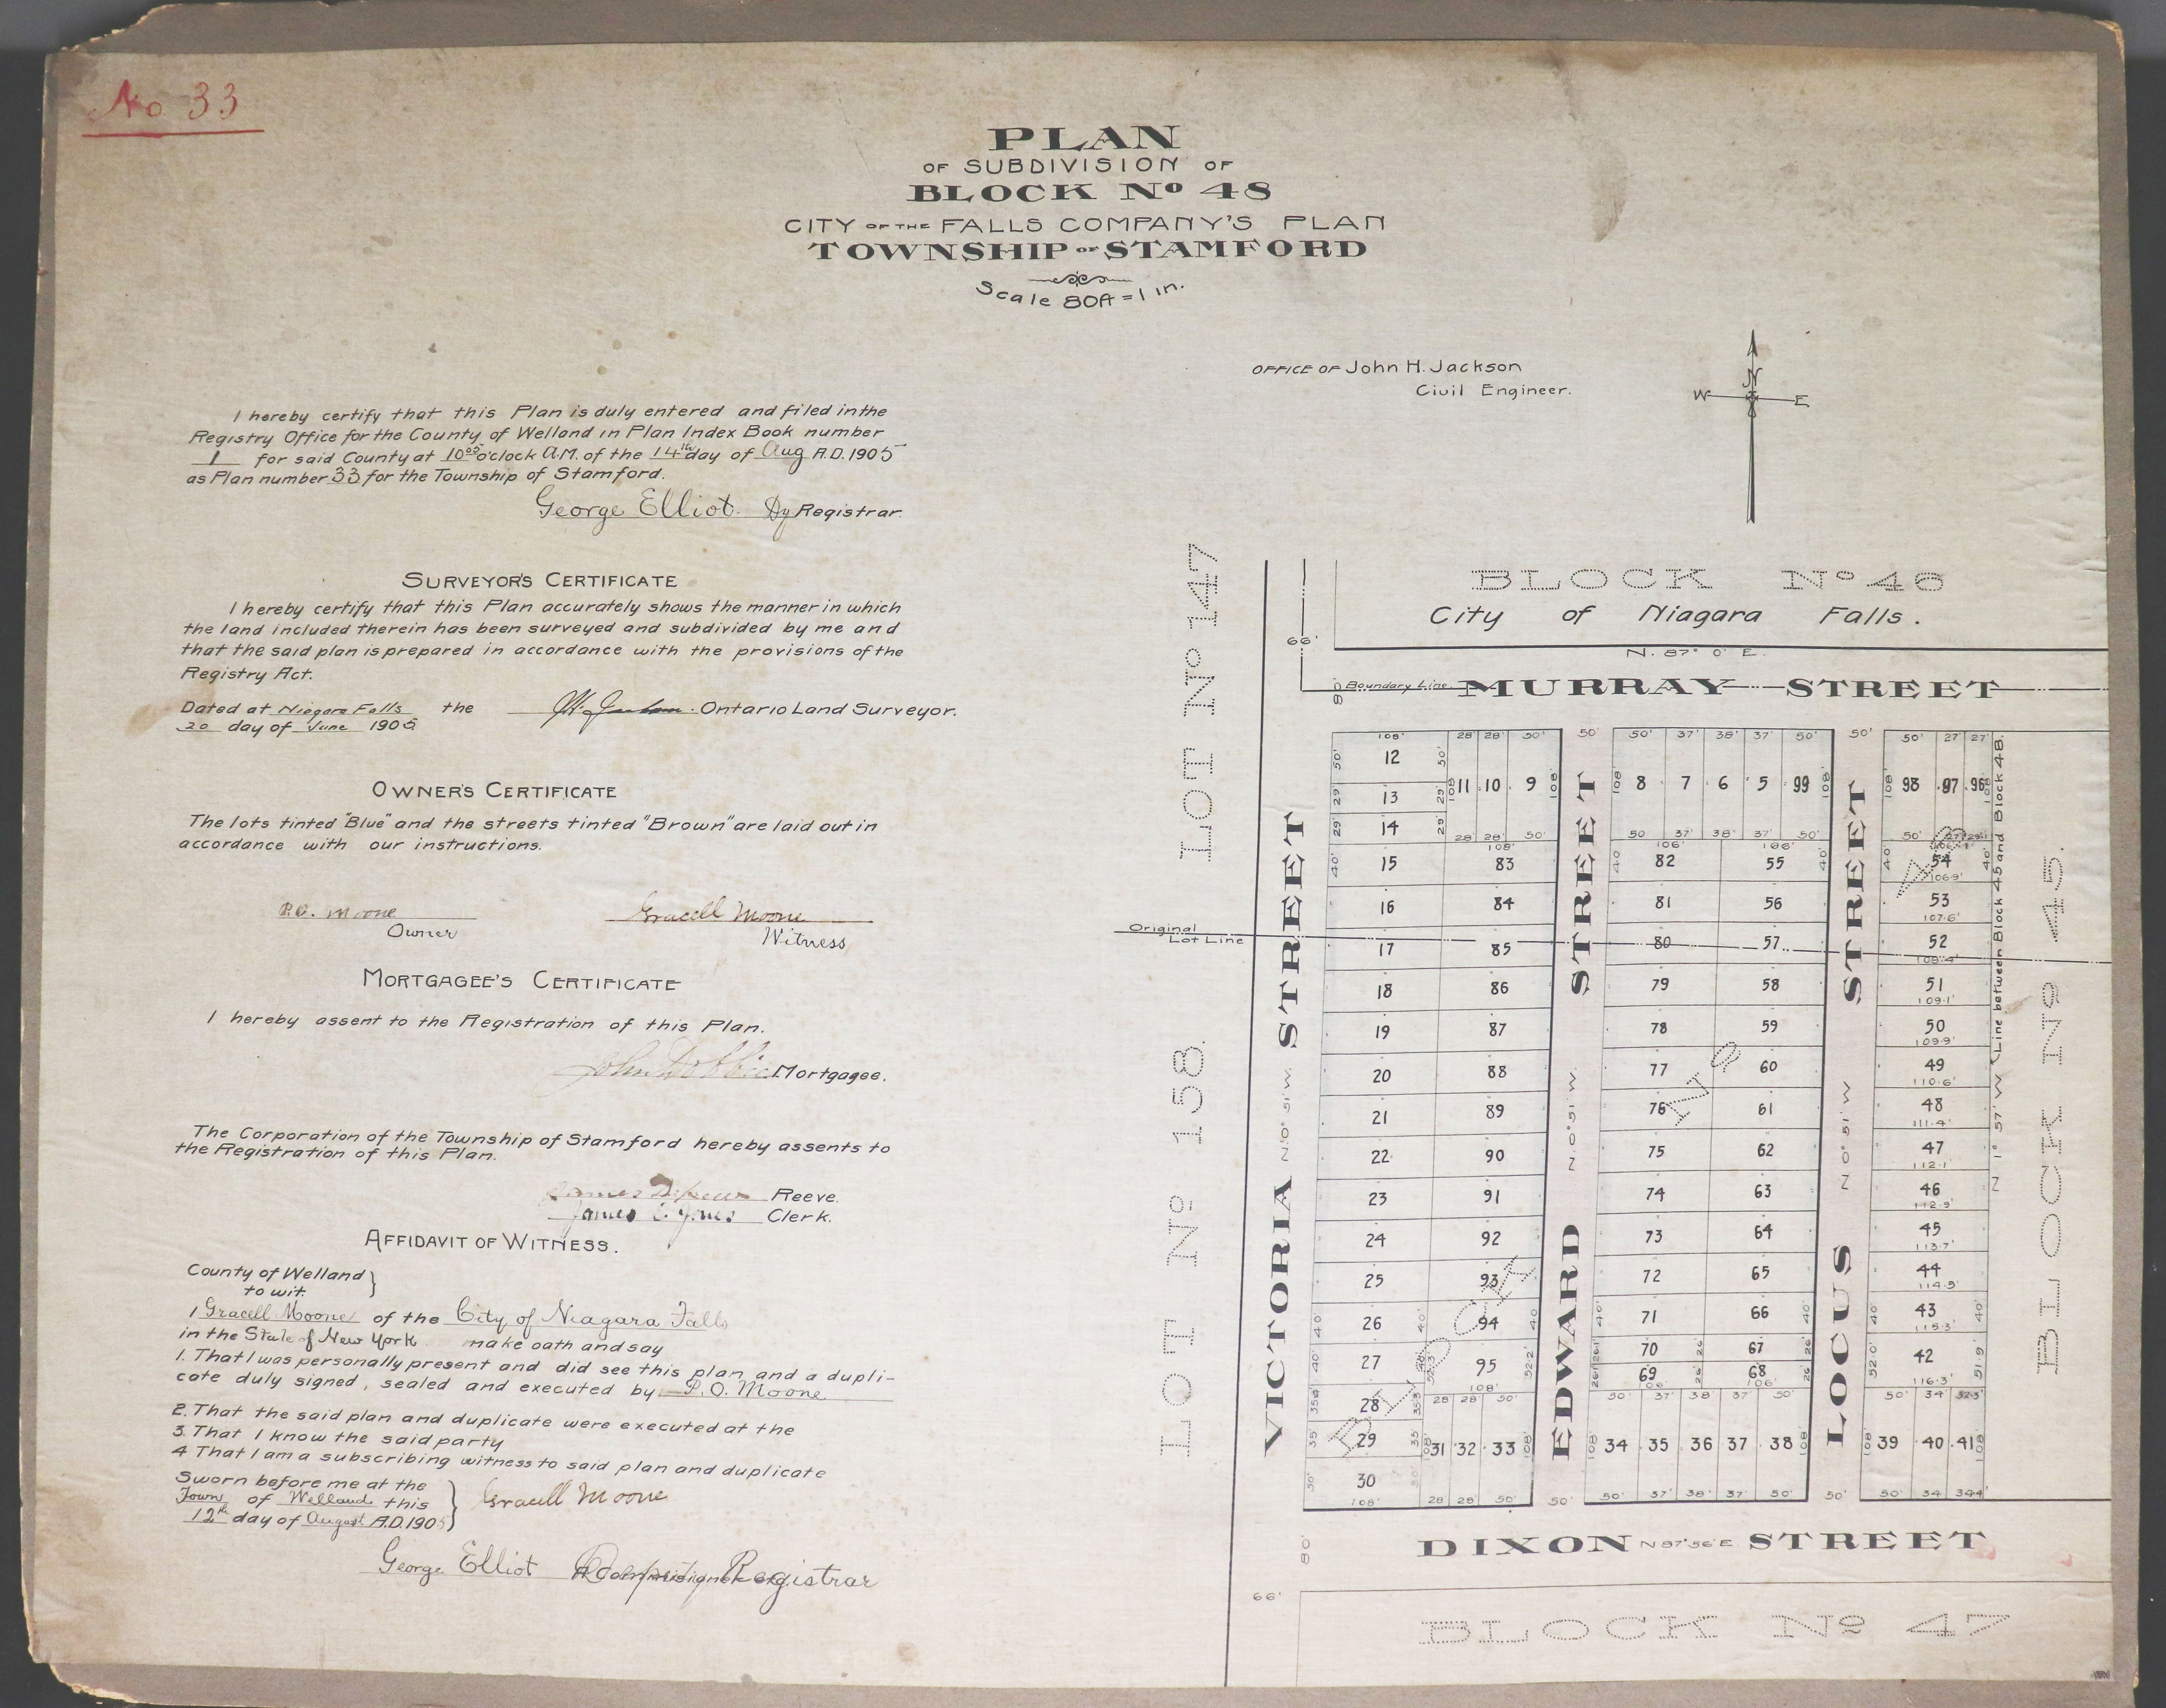 No 33
PLAN
OF SUBDIVISION OF
BLOCK No 48
CITY OF THE FALLS COMPANY'S PLAN
TOWNSHIP OF STAMFORD
Scale 80ft = 1 in.
OFFICE OF John H. Jackson
Civil Engineer.
N
W E
I hereby certify that this Plan is duly entered and filed in the
Registry Office for the County of Welland in Plan Index Book number
1 for said County at 10 05 o'clock A.M. of the 14th day of Aug A.D. 1905
as Plan number 33 for the Township of Stamford.
George Elliot Dy Registrar.
SURVEYOR'S CERTIFICATE
I hereby certify that this Plan accurately shows the manner in which
the land included therein has been surveyed and subdivided by me and
that the said plan is prepared in accordance with the provisions of the
Registry Act.
Dated at Niagara Falls the
20 day of June 1905
Ontario Land Surveyor.
OWNER'S CERTIFICATE
The lots tinted "Blue" and the streets tinted "Brown" are laid out in
accordance with our instructions.
P.O. Moone Gracell Moone
Owner Witness
MORTGAGEE'S CERTIFICATE
I hereby assent to the Registration of this Plan.
John Dobbie Mortgagee.
The Corporation of the Township of Stamford hereby assents to
the Registration of this Plan.
Reeve.
Clerk.
AFFIDAVIT OF WITNESS.
County of Welland }
to wit.
I Gracell Moone of the City of Niagara Falls
in the State of New York make oath and say
1. That I was personally present and did see this plan and a dupli-
cate duly signed, sealed and executed by P. O. Moone
2. That the said plan and duplicate were executed at the
3. That I know the said party
4 That I am a subscribing witness to said plan and duplicate
Sworn before me at the
Town of Welland this
12th day of August A.D. 1905
Gracell Moone
George Elliot Deputy Registrar
LOT No 147
LOT No 158.
BLOCK No 46
City of Niagara Falls.
N. 87° 0' E.
66'
80'
Boundary Line
MURRAY STREET
VICTORIA STREET
N. 0° 51' W.
EDWARD STREET
N. 0° 51' W.
LOCUS STREET
N 0° 51' W
N 1° 57' W Line between Block 45 and Block 48.
BLOCK No 45.
BLOCK No 48
Original
Lot Line
108' 28' 28' 50' 50' 50' 37' 38' 37' 50' 50' 50' 27' 27'
12 11 10 9 8 7 6 5 99 98 97 96
13
14
28 28' 50' 50 37' 38' 37' 50' 50'
108' 106' 106'
15 83 82 55 54
106.9'
16 84 81 56 53
107.6'
17 85 80 57 52
108.4'
18 86 79 58 51
109.1'
19 87 78 59 50
109.9'
20 88 77 60 49
110.6'
21 89 76 61 48
111.4'
22 90 75 62 47
112.1'
23 91 74 63 46
112.9'
24 92 73 64 45
113.7'
25 93 72 65 44
114.5'
26 94 71 66 43
115.3'
27 95 70 67 42
69 68
116.3'
108' 106 106'
28 28' 28' 50' 50' 37' 38' 37' 50' 50' 34' 32.3'
29 31 32 33 34 35 36 37 38 39 40 41
30
108' 28' 28' 50' 50' 50' 37' 38' 37' 50' 50' 50' 34 34.4'
80'
DIXON N 87° 56' E STREET
66'
BLOCK No 47